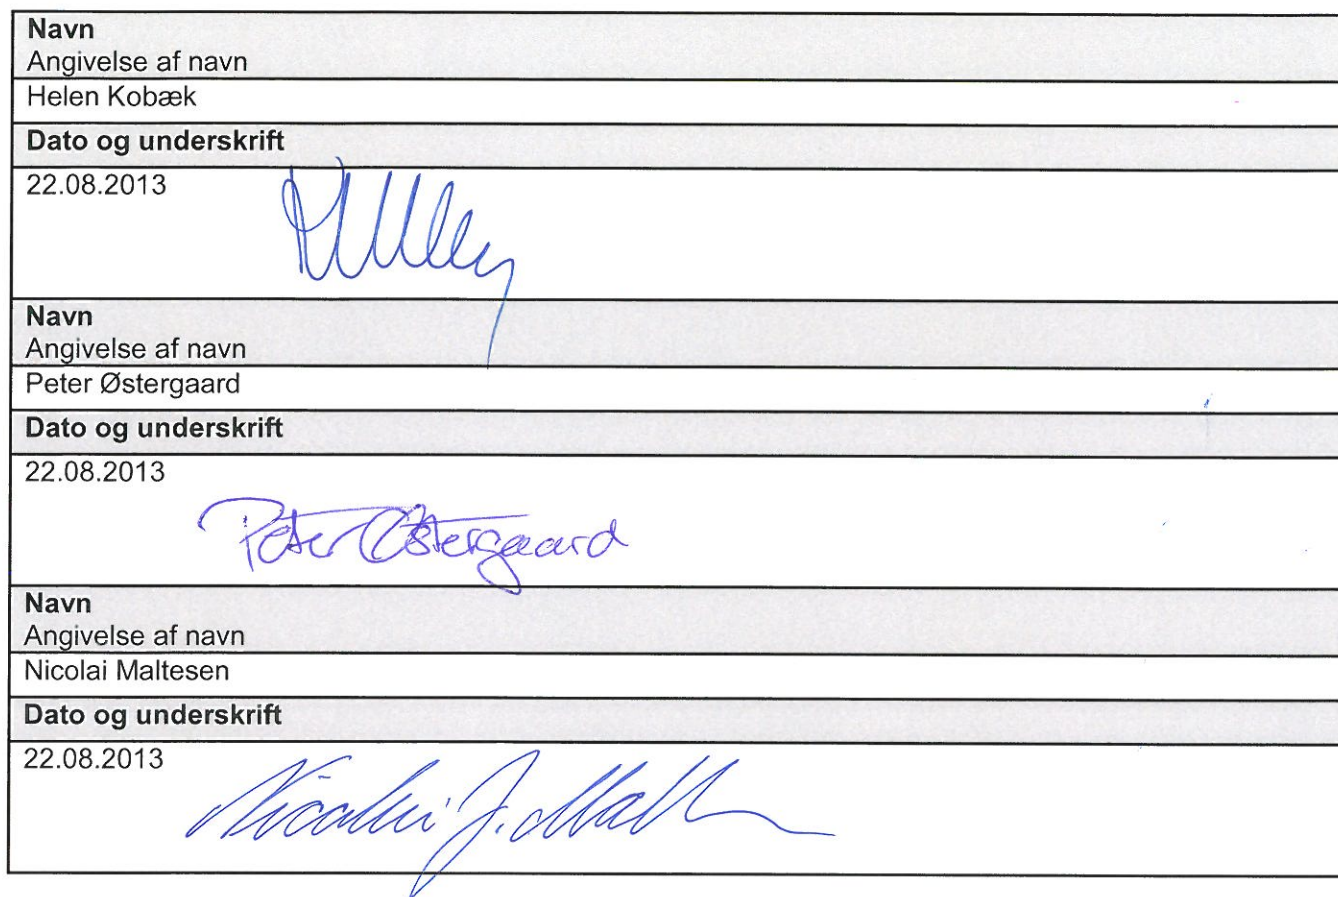 Navn
Angivelse af navn
Helen Kobæk
Dato og underskrift
22.08.2013
Navn
Angivelse af navn
Peter Østergaard
Dato og underskrift
22.08.2013
Peter Østergaard
Navn
Angivelse af navn
Nicolai Maltesen
Dato og underskrift
22.08.2013
Nicolai J.